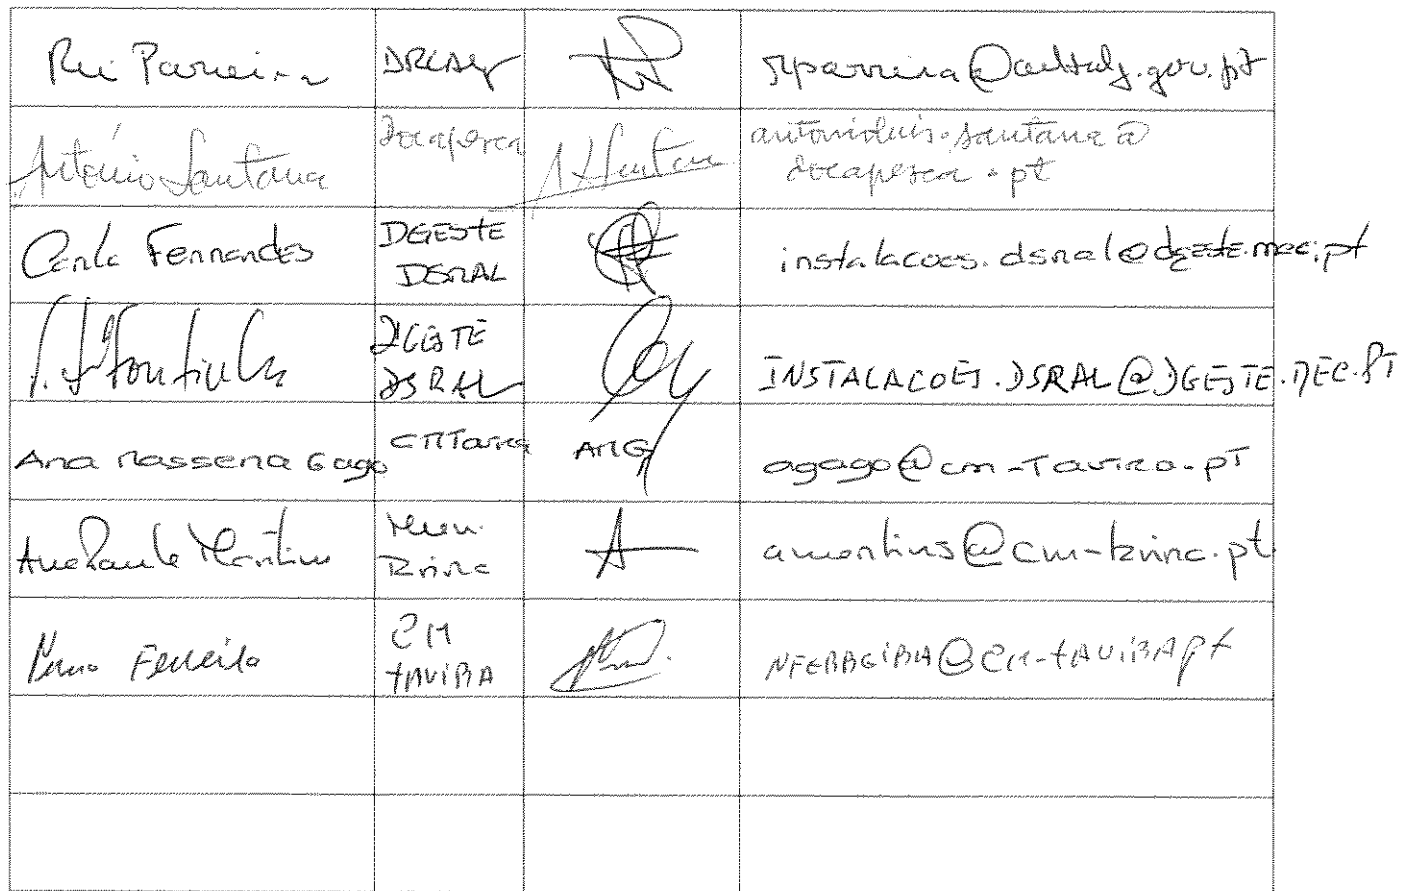 Rui Parreira DRCAlg rparreira@cultalg.gov.pt
António Santana Docapesca antonioluis.santana@
docapesca.pt
Carla Fernandes DGESTE instalacoes.dsral@dgeste.mec.pt
DSRAL
DGESTE
DSRAL INSTALACOES.DSRAL@DGESTE.MEC.PT
Ana Massena Gago CMTavira AMG agago@cm-tavira.pt
Ana Paula Martins Mun. A amartins@cm-tavira.pt
Tavira
Nuno Ferreira CM NFERREIRA@CM-TAVIRA.PT
TAVIRA